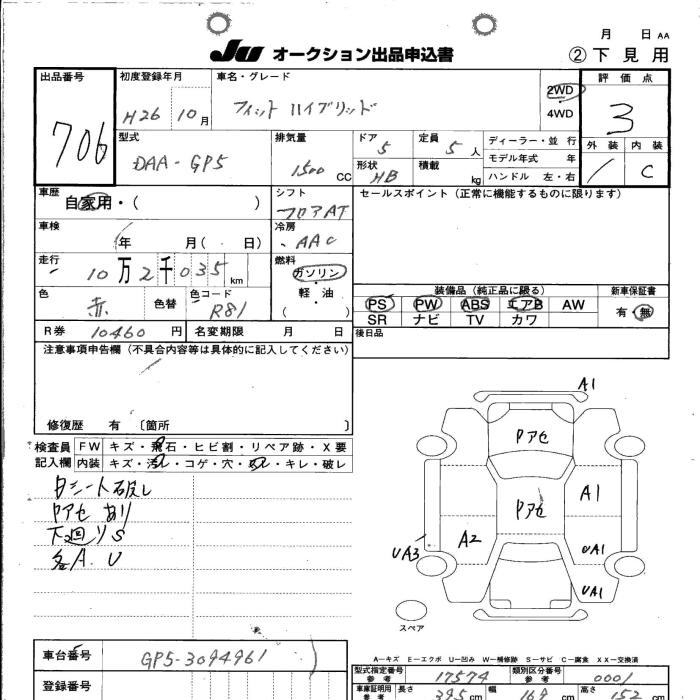 月 日 AA
JU オークション出品申込書 ②下見用
出品番号 初度登録年月 車名・グレード 評価点
706 H26 10月 フィット ハイブリッド 2WD 4WD 3
型式 排気量 ドア 定員 ディーラー・並行 外装 内装
DAA-GP5 1500 CC 5 5人 モデル年式 年 C
形状 積載 ハンドル 左・右
HB kg
車歴 シフト セールスポイント（正常に機能するものに限ります）
自家用・（ ） フロアAT
車検 冷房
年 月（ 日） AAC
走行 燃料
10万2千035km ガソリン
軽・油
（ ）
装備品（純正品に限る） 新車保証書
色 色替 色コード PS PW ABS エアB AW 有・無
赤 R81 SR ナビ TV カワ
R券 10460円 名変期限 月 日 後日品
注意事項申告欄（不具合内容等は具体的に記入してください）
修復歴 有 〔箇所 〕
検査員 FW キズ・飛石・ヒビ割・リペア跡・X要
記入欄 内装 キズ・汚レ・コゲ・穴・・キレ・破レ
シート破レ
Pアセ あり
下回りS
各A. U
A1
Pアセ
Pアセ
A1
A2
UA3
UA1
UA1
スペア
車台番号 GP5-3094961
登録番号
A－キズ E－エクボ U－凹み W－補修跡 S－サビ C－腐食 XX－交換済
型式指定番号 参考 17574 類別区分番号 参考 0001
車庫証明用 参考 長さ 395cm 幅 169cm 高さ 152cm